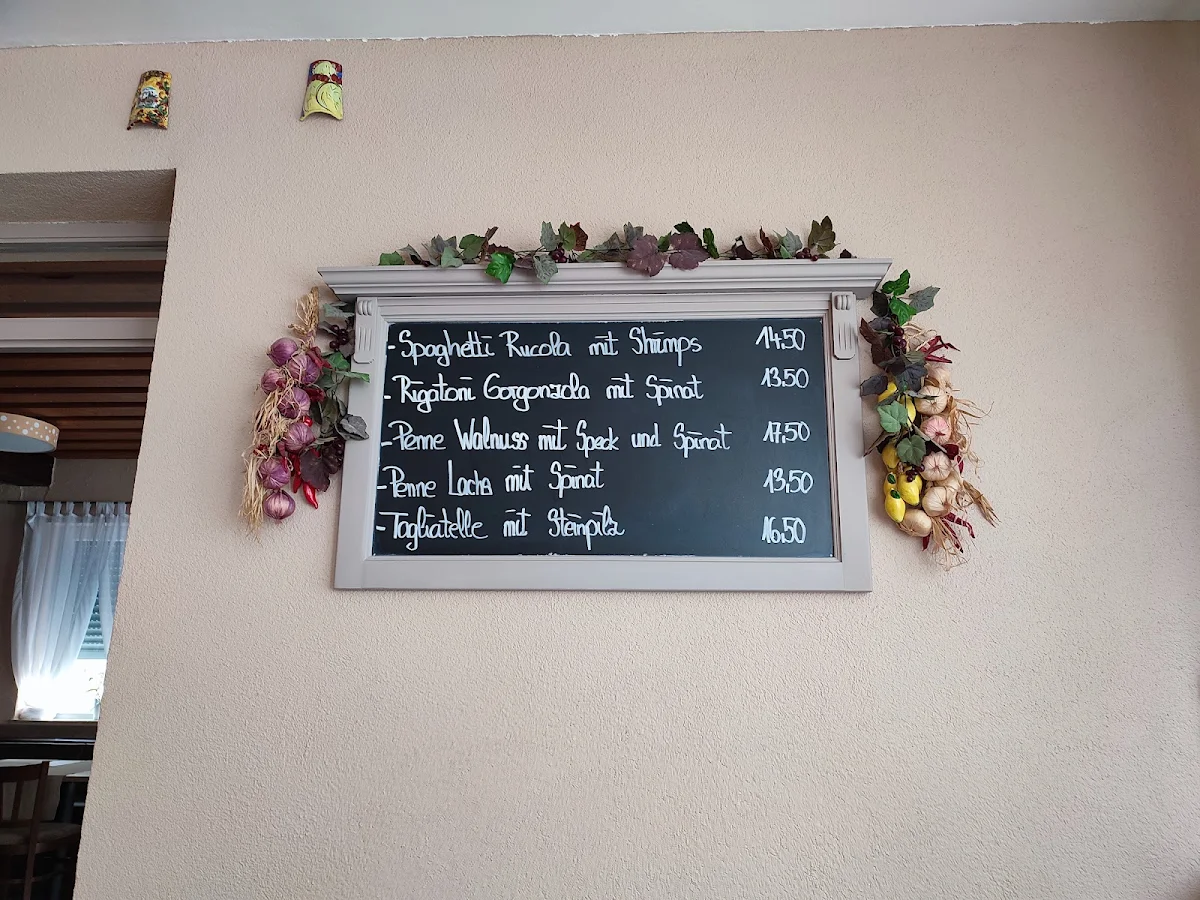 - Spaghetti Rucola mit Shrimps 14.50
- Rigatoni Gorgonzola mit Spinat 13.50
- Penne Walnuss mit Speck und Spinat 17,50
- Penne Lachs mit Spinat 13,50
- Tagliatelle mit Steinpilz 16,50